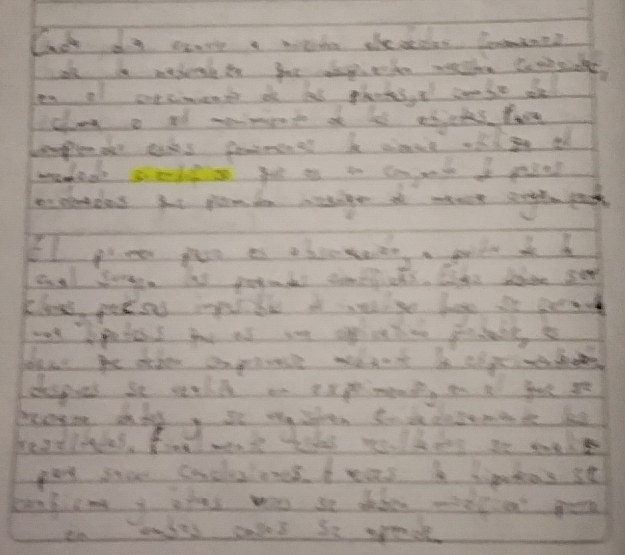 Cada día ocurre a nuestro alrededor fenómenos
de la naturaleza que despiertan nuestra curiosidad,
en el crecimiento de las plantas, el cambio del
clima o el movimiento de los objetos. Para
comprender estos fenomenos la ciencia utiliza el
metodo científico que es un conjunto de pasos
ordenados que permiten investigar de manera organizada
El primer paso es observación, a partir de la
cual surgen las preguntas científicas. Estas deben ser
claras, precisas imposible de investigar luego se
una hipótesis que es una explicación posible, es
decir que debe comprobarse mediante la experimentación
después se realiza un experimento, en el que se
datos y se registran cuidadosamente los
resultados. finalmente estos resultados se analiza
para sacar conclusiones. A veces la hipótesis se
confirma y otras veces se debe modificar pero
en ambos casos se aprende